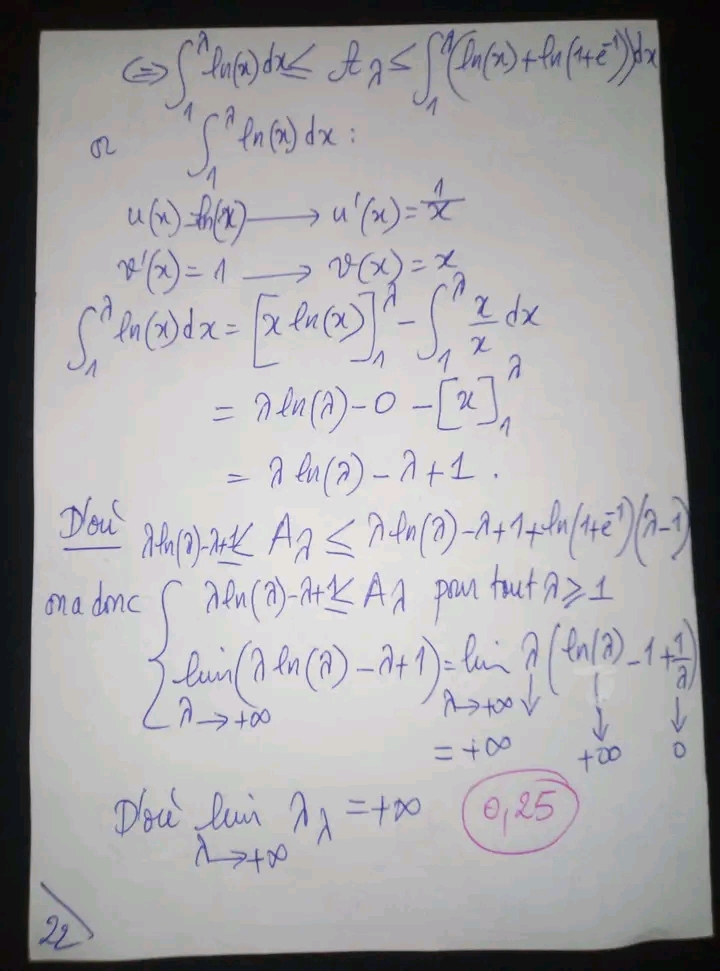 ⇔ ∫₁^λ ln(x)dx ≤ A_λ ≤ ∫₁^λ (ln(x) + ln(1+e⁻¹))dx
or ∫₁^λ ln(x)dx :
u(x) = ln(x) → u'(x) = 1/x
v'(x) = 1 → v(x) = x
∫₁^λ ln(x)dx = [x ln(x)]₁^λ - ∫₁^λ x/x dx
= λ ln(λ) - 0 - [x]₁^λ
= λ ln(λ) - λ + 1 .
D'où λ ln(λ) - λ + 1 ≤ A_λ ≤ λ ln(λ) - λ + 1 + ln(1+e⁻¹)(λ-1)
on a donc { λ ln(λ) - λ + 1 ≤ A_λ pour tout λ ≥ 1
lim (λ ln(λ) - λ + 1) = lim λ (ln(λ) - 1 + 1/λ)
λ → +∞ λ → +∞ ↓ ↓ ↓
= +∞ +∞ 0
D'où lim λ_λ = +∞ 0,25
λ → +∞
22